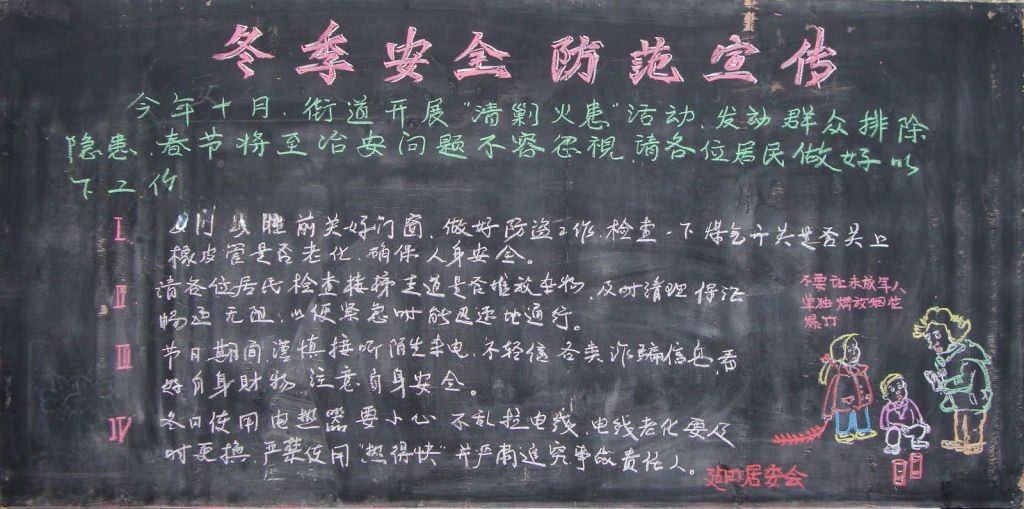 冬季安全防范宣传
今年十月,街道开展"清剿火患"活动,发动群众排除
隐患,春节将至治安问题不容忽视,请各位居民做好以
下工作
I 门 睡前关好门窗,做好防盗工作,检查一下煤气开关是否关上
橡皮管是否老化,确保人身安全。
II 请各位居民检查楼梯走道是否堆放杂物,及时清理保证
畅通无阻,以便紧急时能迅速地通行。
III 节日期间,谨慎接听陌生来电,不轻信各类诈骗信息,看
好自身财物,注意自身安全。
IV 冬日使用电热器要小心 不乱拉电线,电线老化要及
时更换,严禁使用"热得快"并严肃追究事故责任人。
不要让未成年人
单独燃放烟花
爆竹
居委会